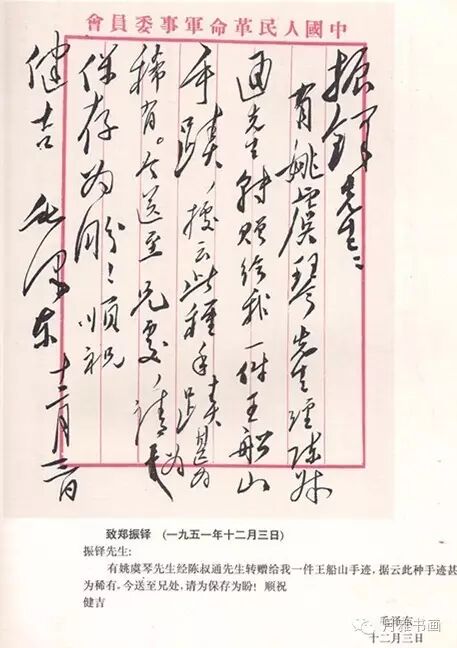 會員委事軍命革民人國中
振鐸先生：
有姚虞琴先生經陳叔
通先生轉贈給我一件王船山
手蹟，據云此種手蹟甚为
稀有。今送至兄處，請为
保存为盼！順祝
健吉
毛澤东
十二月三日
致郑振铎 （一九五一年十二月三日）
振铎先生:
有姚虞琴先生经陈叔通先生转赠给我一件王船山手迹，据云此种手迹甚
为稀有，今送至兄处，请为保存为盼！顺祝
健吉
毛泽东
十二月三日